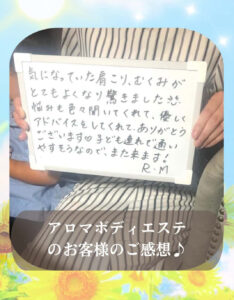 気になっていた肩こり、むくみが
とてもよくなり驚きました
悩みも色々聞いてくれて、優しく
アドバイスをしてくれて、ありがとう
ございます♡子ども連れで通い
やすそうなので、また来ます!
R.M
アロマボディエステ
のお客様のご感想♪